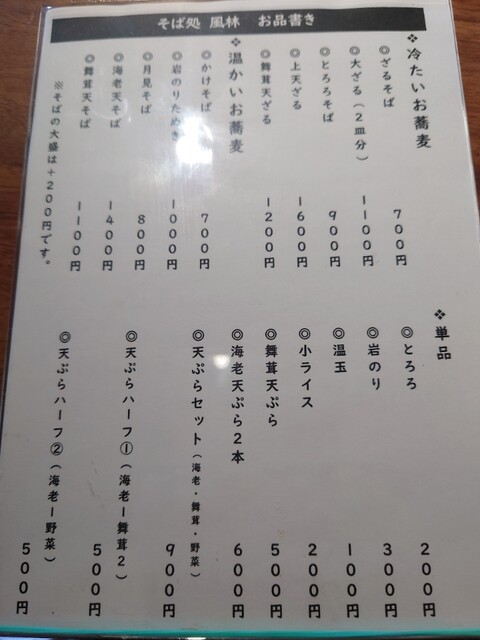 そば処 風林 お品書き
❖冷たいお蕎麦
◎ざるそば 700円
◎大ざる(2皿分) 1100円
◎とろろそば 900円
◎上天ざる 1600円
◎舞茸天ざる 1200円
❖温かいお蕎麦
◎かけそば 700円
◎岩のりたぬき 1000円
◎月見そば 800円
◎海老天そば 1400円
◎舞茸天そば 1100円
※そばの大盛は+200円です。
❖単品
◎とろろ 200円
◎岩のり 300円
◎温玉 100円
◎小ライス 200円
◎舞茸天ぷら 500円
◎海老天ぷら2本 600円
◎天ぷらセット(海老・舞茸・野菜) 900円
◎天ぷらハーフ①(海老1舞茸2) 500円
◎天ぷらハーフ②(海老1野菜) 500円